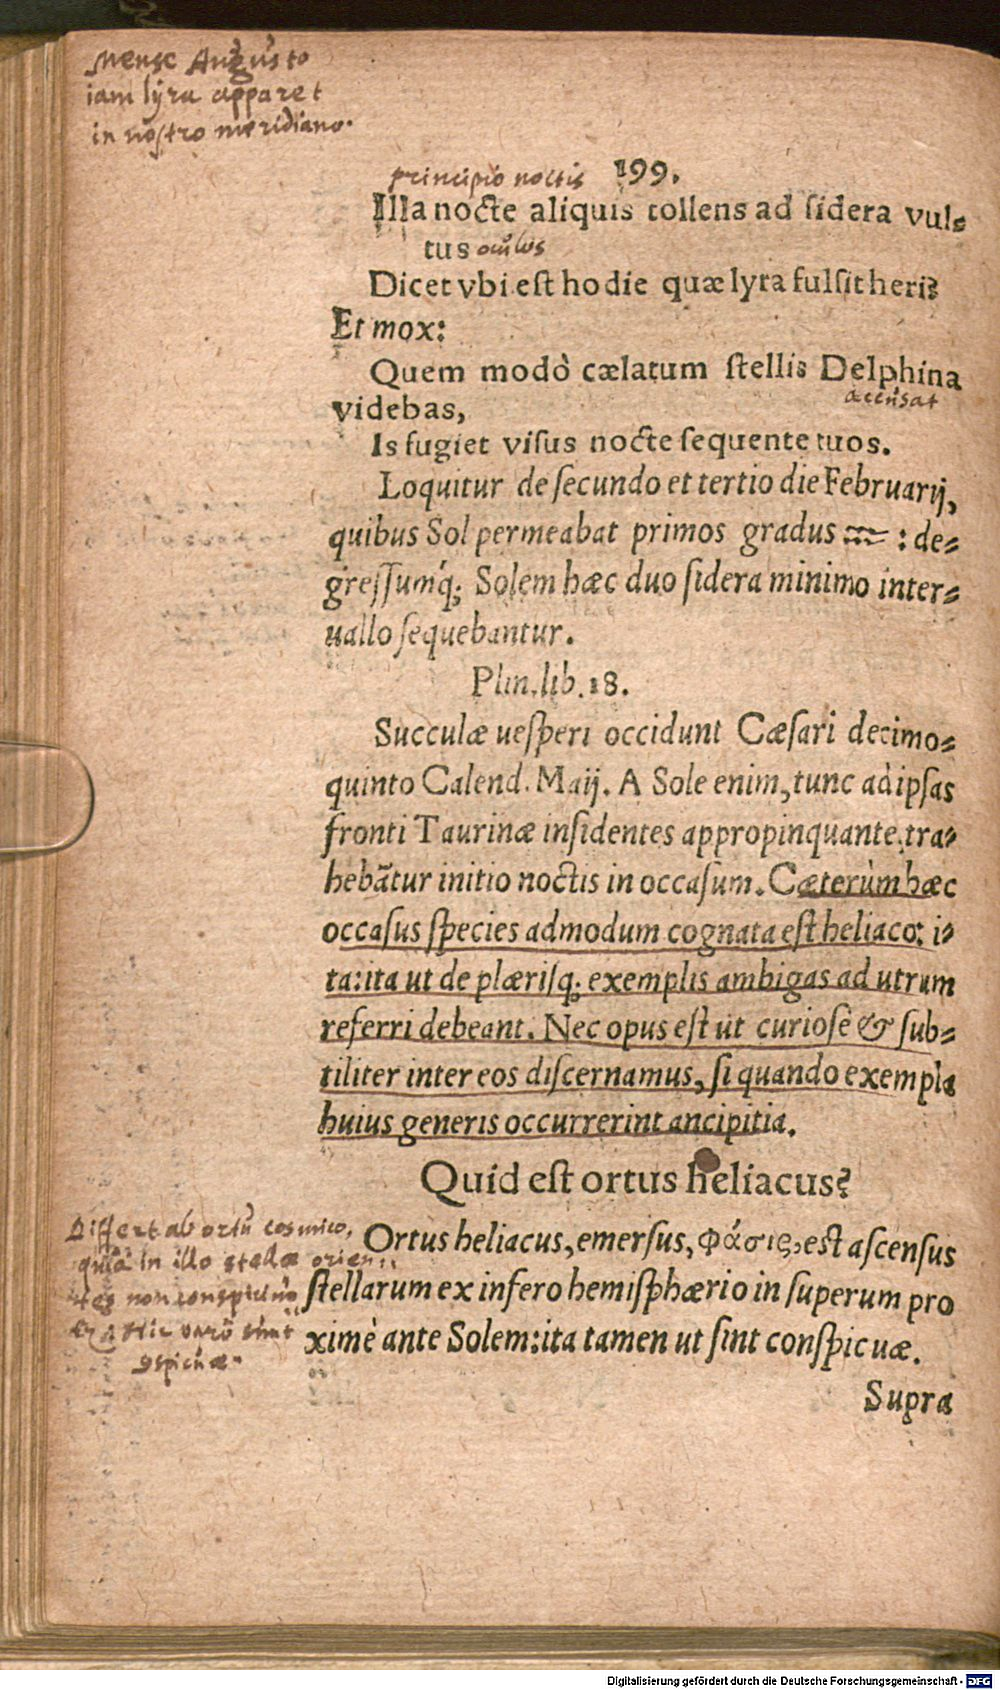 mense Augusto
iam lyra apparet
in nostro meridiano.
199.
principio noctis
Illa nocte aliquis tollens ad sidera vul⸗
tus oculos
Dicet vbi est hodie quæ lyra fulsit heri?
Et mox:
Quem modò cælatum stellis Delphina
videbas,
Is fugiet visus nocte sequente tuos.
Loquitur de secundo et tertio die Februarij,
quibus Sol permeabat primos gradus ♒ : de⸗
gressumq́; Solem hæc duo sidera minimo inter⸗
uallo sequebantur.
Plin. lib. 18.
Succulæ uesperi occidunt Cæsari decimo⸗
quinto Calend. Maij. A Sole enim, tunc ad ipsas
fronti Taurinæ insidentes appropinquante, tra⸗
hebãtur initio noctis in occasum. Cæterùm hæc
occasus species admodum cognata est heliaco: i⸗
ta: ita ut de plærisq; exemplis ambigas ad utrum
referri debeant. Nec opus est ut curiosè & sub⸗
tiliter inter eos discernamus, si quando exempla
huius generis occurrerint ancipitia.
Quid est ortus heliacus?
Differt ab ortu cosmico,
quia in illo stellæ orien⸗
tes non conspiciun
tur. Hic varò sunt
ↄspicuæ.
Ortus heliacus, emersus, φάσις, est ascensus
stellarum ex infero hemisphærio in superum pro
ximè ante Solem: ita tamen ut sint conspicuæ.
Supra
Digitalisierung gefördert durch die Deutsche Forschungsgemeinschaft - DFG